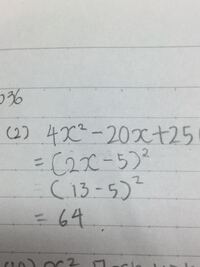 036
(2) 4x² - 20x + 25
= (2x - 5)²
= (13 - 5)²
= 64